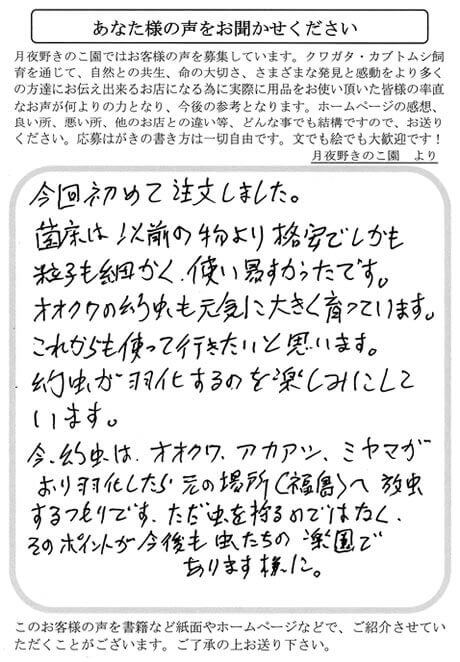 あなた様の声をお聞かせください
月夜野きのこ園ではお客様の声を募集しています。クワガタ・カブトムシ飼
育を通じて、自然との共生、命の大切さ、さまざまな発見と感動をより多く
の方達にお伝え出来るお店になる為に実際に用品をお使い頂いた皆様の率直
なお声が何よりの力となり、今後の参考となります。ホームページの感想、
良い所、悪い所、他のお店との違い等、どんな事でも結構ですので、お送り
ください。応募はがきの書き方は一切自由です。文でも絵でも大歓迎です！
月夜野きのこ園　より
今回初めて注文しました。
菌床は以前の物より格安でしかも
粒子も細かく、使い易すかったです。
オオクワの幼虫も元気に大きく育っています。
これからも使って行きたいと思います。
幼虫が羽化するのを楽しみにして
います。
今、幼虫は、オオクワ、アカアシ、ミヤマが
おり羽化したら元の場所（福島）へ放虫
するつもりです。ただ虫を狩るのではなく、
そのポイントが今後も虫たちの楽園で
あります様に。
このお客様の声を書籍など紙面やホームページなどで、ご紹介させてい
ただくことがございます。ご了承の上お送り下さい。